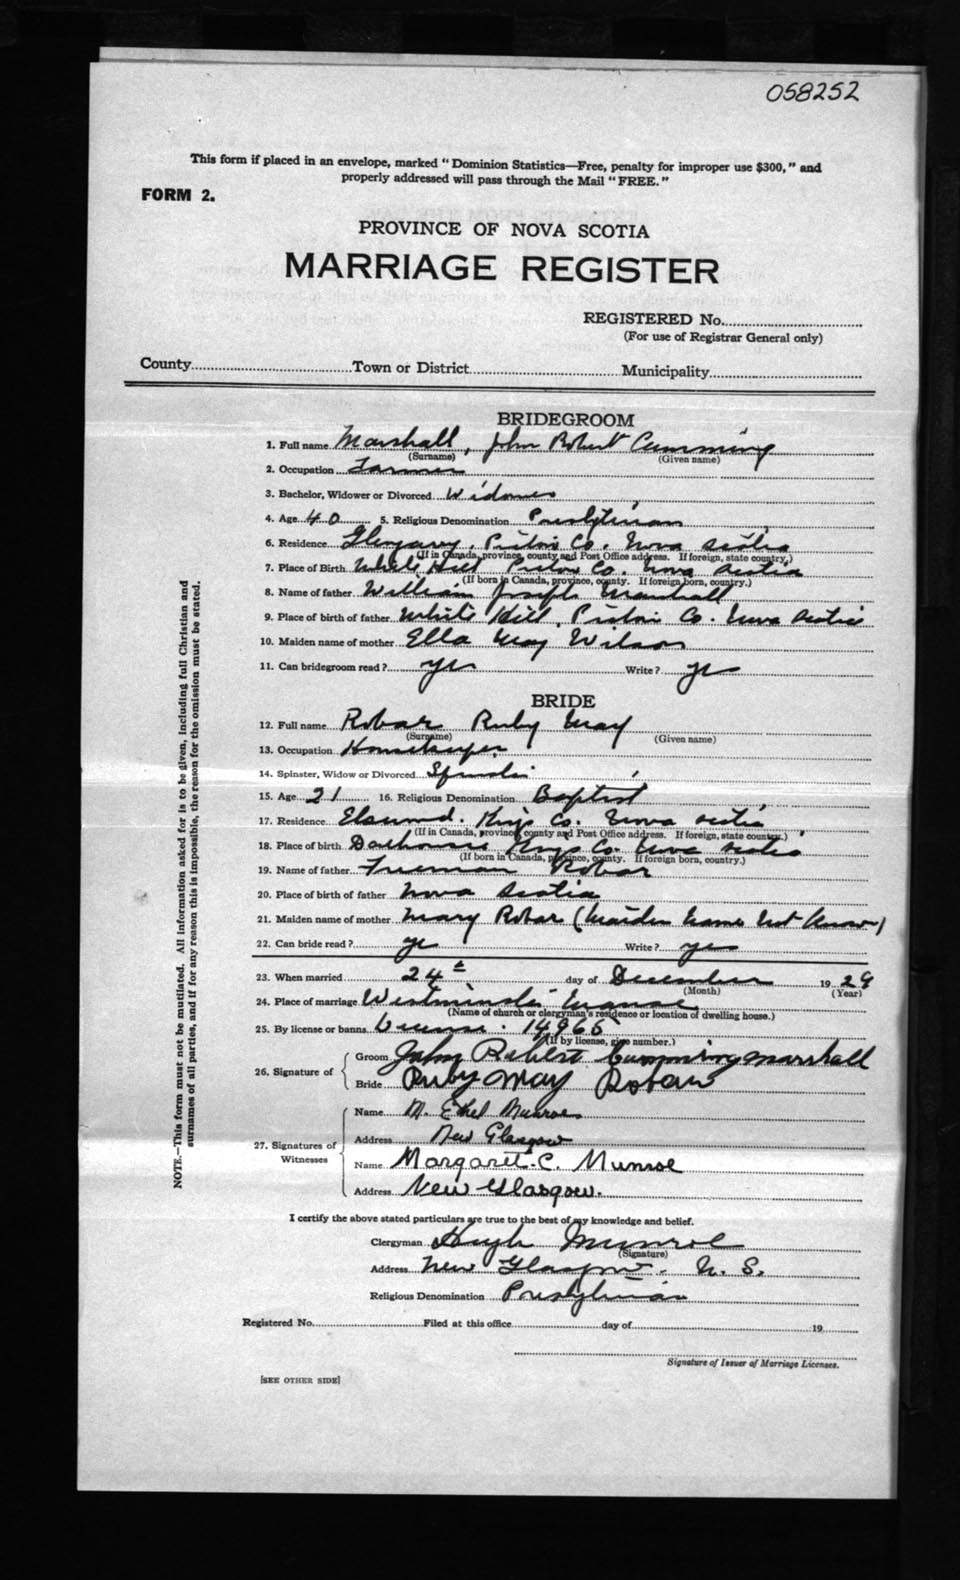 058252
This form if placed in an envelope, marked "Dominion Statistics—Free, penalty for improper use $300," and
properly addressed will pass through the Mail "FREE."
FORM 2.
PROVINCE OF NOVA SCOTIA
MARRIAGE REGISTER
REGISTERED No.
(For use of Registrar General only)
County Town or District Municipality
BRIDEGROOM
1. Full name Marshall, John Robert Cumming
(Surname) (Given name)
2. Occupation Farmer
3. Bachelor, Widower or Divorced Widower
4. Age 40 5. Religious Denomination Presbyterian
6. Residence Glengarry, Pictou Co. Nova Scotia
(If in Canada, province, county and Post Office address. If foreign, state country.)
7. Place of Birth White Hill Pictou Co. Nova Scotia
(If born in Canada, province, county. If foreign born, country.)
8. Name of father William Joseph Marshall
9. Place of birth of father White Hill, Pictou Co. Nova Scotia
10. Maiden name of mother Ella May Wilson
11. Can bridegroom read? yes Write? yes
BRIDE
12. Full name Robar Ruby May
(Surname) (Given name)
13. Occupation Housekeeper
14. Spinster, Widow or Divorced Spinster
15. Age 21 16. Religious Denomination Baptist
17. Residence Kings Co. Nova Scotia
(If in Canada, province, county and Post Office address. If foreign, state country.)
18. Place of birth Dalhousie Kings Co. Nova Scotia
(If born in Canada, province, county. If foreign born, country.)
19. Name of father Freeman Robar
20. Place of birth of father Nova Scotia
21. Maiden name of mother Mary Robar (Maiden Name Not Known)
22. Can bride read? yes Write? yes
23. When married 24th day of December 1929
(Month) (Year)
24. Place of marriage Westminster Manse
(Name of church or clergyman's residence or location of dwelling house.)
25. By license or banns License. 14965
(If by license, give number.)
26. Signature of Groom John Robert Cumming Marshall
Bride Ruby May Robar
27. Signatures of Witnesses
Name M. Ethel Munroe
Address New Glasgow
Name Margaret C. Munroe
Address New Glasgow.
I certify the above stated particulars are true to the best of my knowledge and belief.
Clergyman Hugh Munroe
(Signature)
Address New Glasgow. N. S.
Religious Denomination Presbyterian
Registered No. Filed at this office day of 19
Signature of Issuer of Marriage Licenses.
[SEE OTHER SIDE]
NOTE.—This form must not be mutilated. All information asked for is to be given, including full Christian and
surnames of all parties, and if for any reason this is impossible, the reason for the omission must be stated.